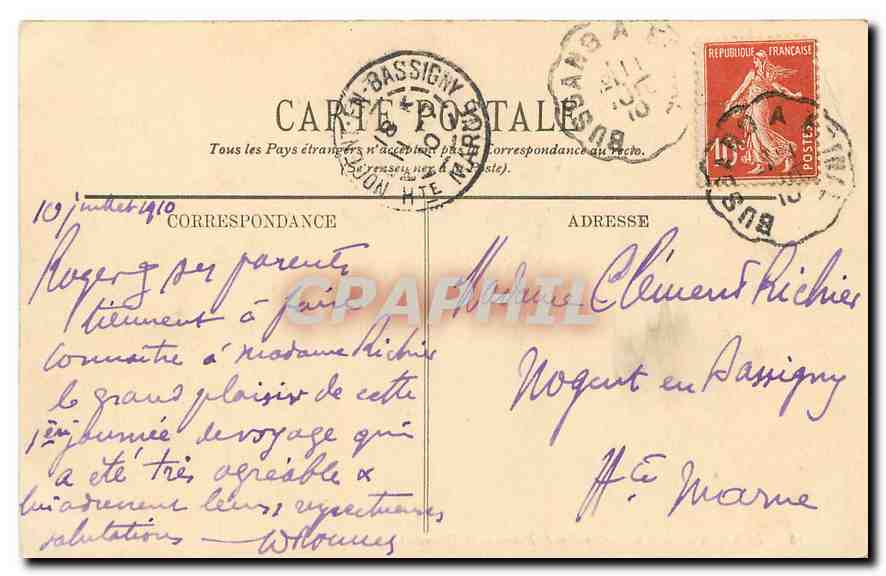 CARTE POSTALE
Tous les Pays étrangers n'acceptent pas la Correspondance au recto.
(Se renseigner à la Poste).
10 juillet 1910
CORRESPONDANCE
Roger & ses parents
tiennent à faire
connaître à Madame Richier
le grand plaisir de cette
1ère journée de voyage qui
a été très agréable &
lui adressent leurs respectueuses
salutations —
ADRESSE
Madame Clément Richier
Nogent en Bassigny
Hte Marne
REPUBLIQUE FRANÇAISE
10
POSTES
EN-BASSIGNY
HTE MARNE
BUSSANG A
BUSSANG A
CPAPHIL